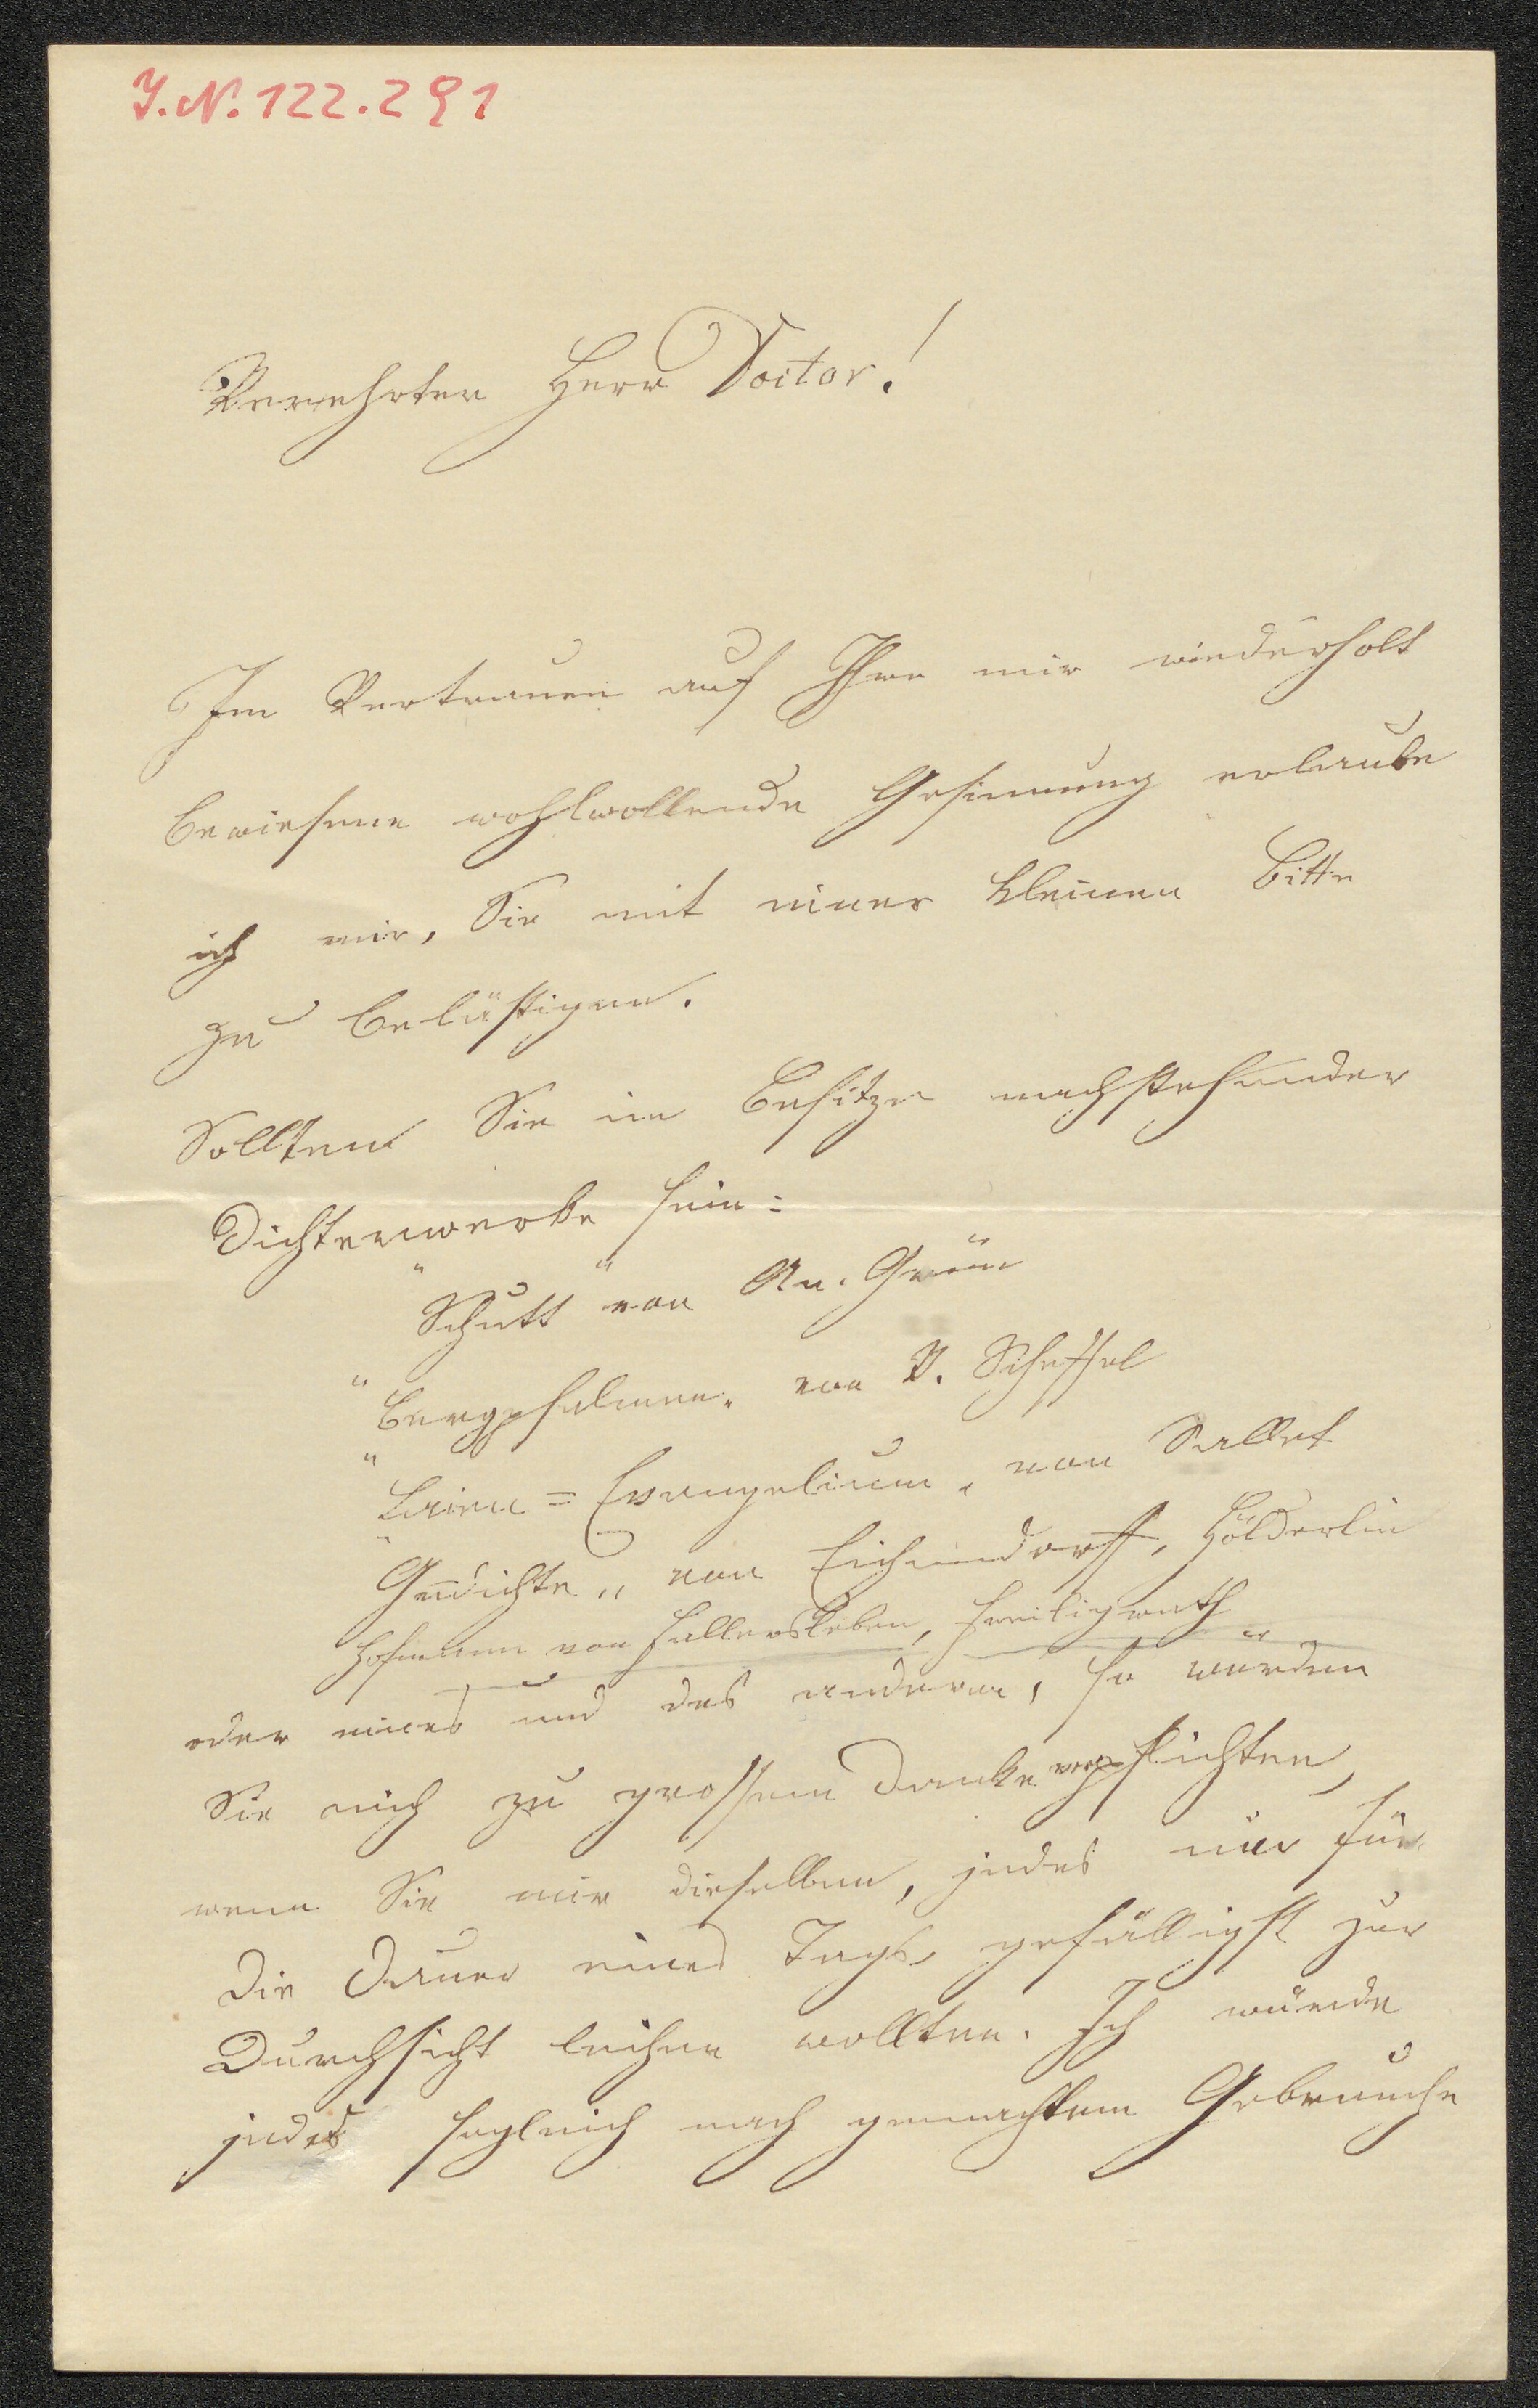 I.N. 122.291
Verehrter Herr Doctor!
Im Vertrauen auf Ihre mir wiederholt
bewiesene wohlwollende Gesinnung erlaube
ich mir, Sie mit einer kleinen Bitte
zu belästigen.
Sollten Sie im Besitze nachstehender
Dichterwerke sein:
"Schutt" von An. Grün
"Bergpsalmen" von V. Scheffel
"Laien=Evangelium" von Sallet
"Gedichte" von Eichendorff, Hölderlin
Hofmann von Fallersleben, Freiligrath
oder eines und des anderen, so würden
Sie mich zu grossem Danke verpflichten,
wenn Sie mir dieselben, jedes nur für
die Dauer eines Tags, gefälligst zur
Durchsicht leihen wollten. Ich würde
jedes sogleich nach gemachtem Gebrauche